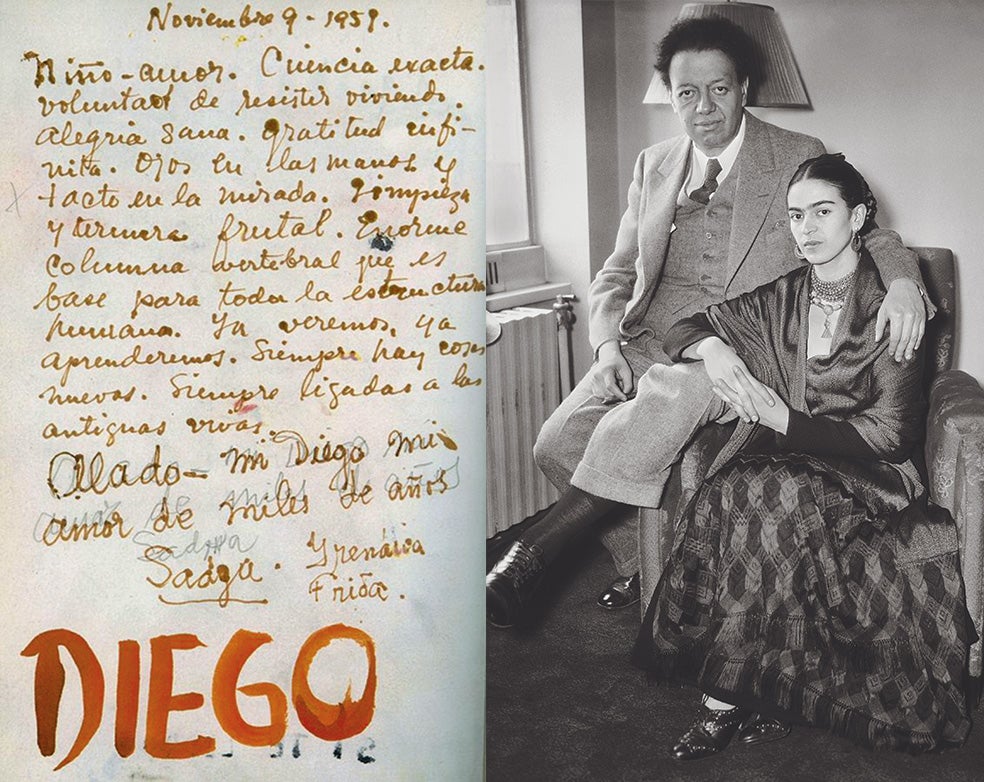 Noviembre 9 - 1951.
Niño-amor. Ciencia exacta.
voluntad de resistir viviendo.
alegria sana. gratitud infi-
nita. Ojos en las manos y
tacto en la mirada. Limpieza
y ternura frutal. Enorme
columna vertebral que es
base para toda la estructura
humana. Ya veremos, ya
aprenderemos. Siempre hay cosas
nuevas. Siempre ligadas a las
antiguas vivas.
Alado - Mi Diego mi
amor de miles de años
Sadga. Yrenáica
Frida.
DIEGO